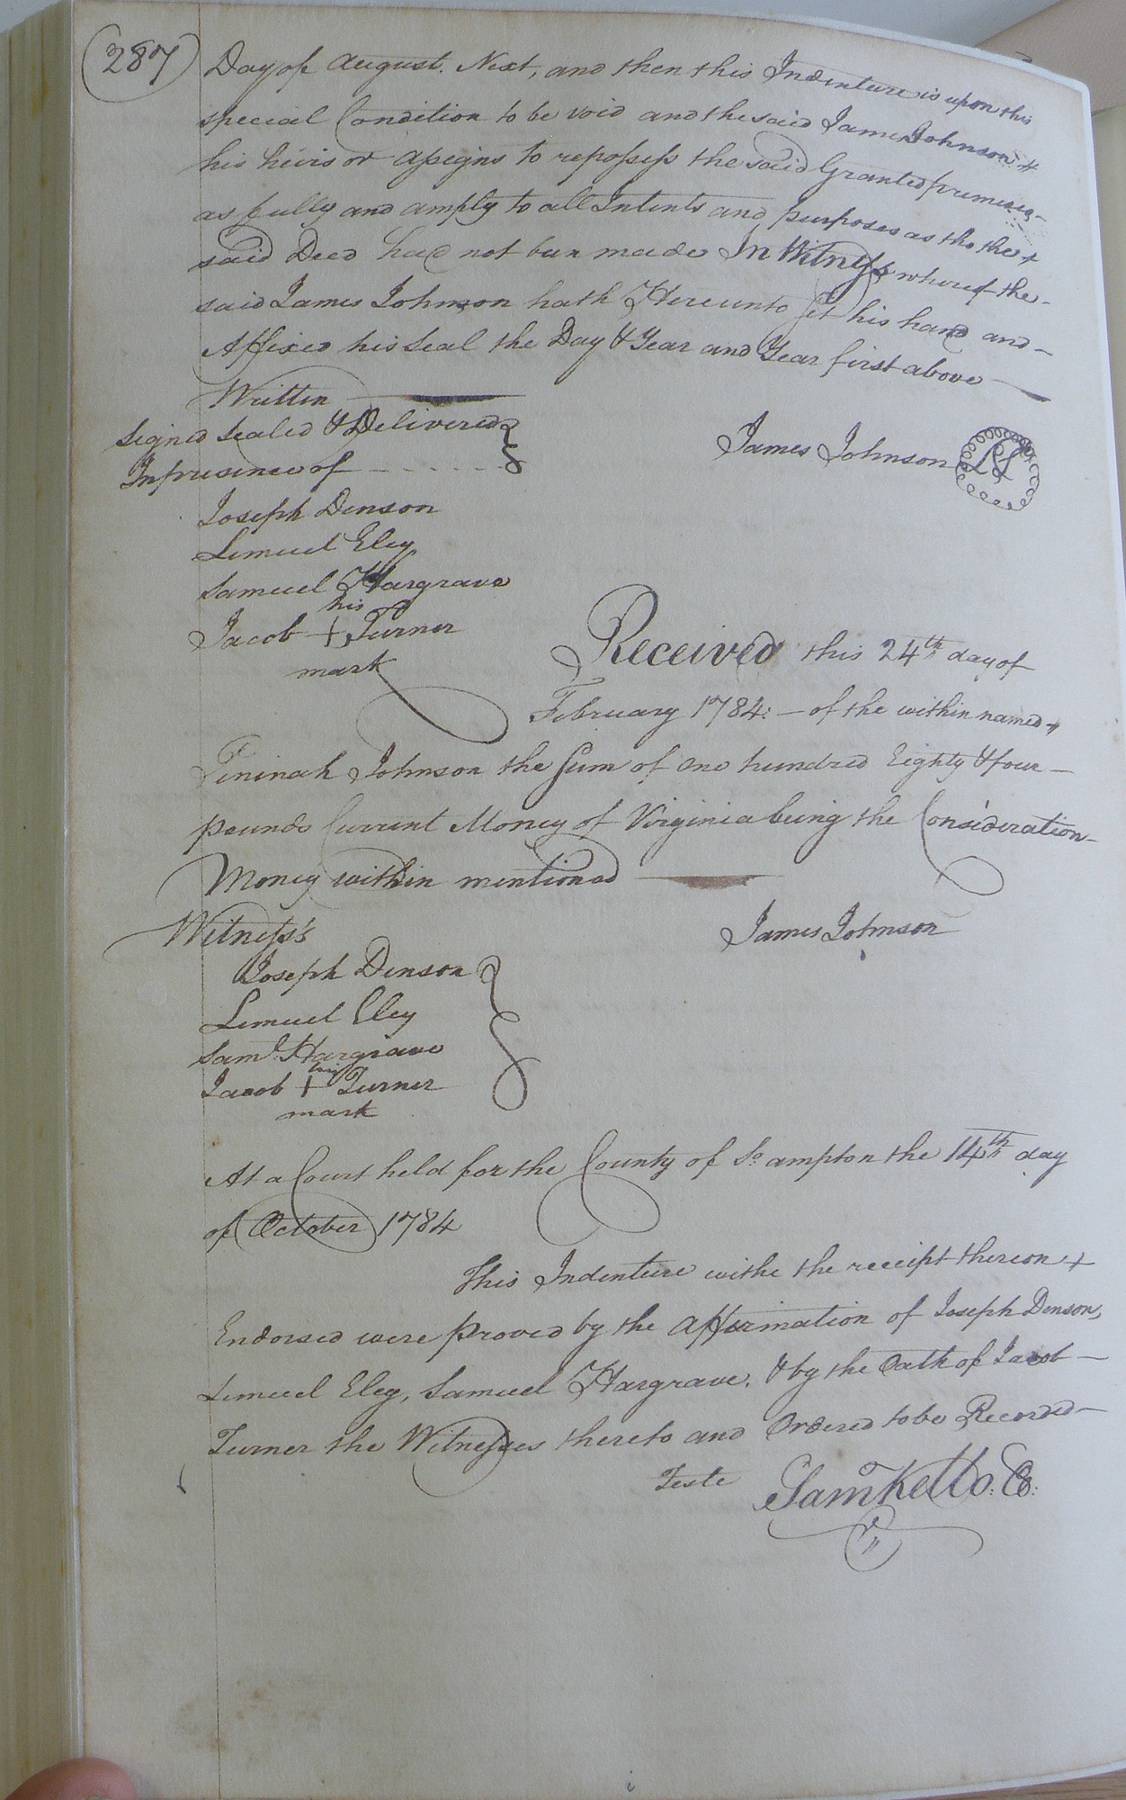 287
Day of August. Next, and then this Indenture is upon this
special Condition to be void and the said James Johnson +
his heirs or assigns to repossess the said Granted premises -
as fully and amply to all Intents and purposes as tho the +
said Deed had not ben made In Witness whereof the -
said James Johnson hath Hereunto set his hand and -
Affixed his Seal the Day & Year and Year first above
Written
Signed Sealed & Delivered
In presence of - - - - - -
James Johnson LS
Joseph Denson
Lemuel Eley
Samuel Hargrave
his
Jacob + Turner
mark
Received this 24th day of
February 1784: - of the within named +
Peninah Johnson the Sum of one hundred Eighty & four -
pounds Current Money of Virginia being the Consideration -
Money within mentioned
Witness's
James Johnson
Joseph Denson
Lemuel Eley
Saml. Hargrave
his
Jacob + Turner
mark
At a Court held for the County of So. ampton the 14th day
of October 1784
This Indenture withe the receipt thereon +
Endorsed were proved by the affirmation of Joseph Denson,
Lemuel Eley, Samuel Hargrave. & by the Oath of Jacob -
Turner the Witnesses thereto and Ordered to be Recorded -
Teste Sam Kello. C: